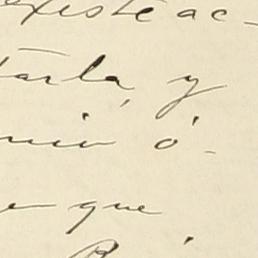 existe ac-
tarla, y
mio ó-
e que